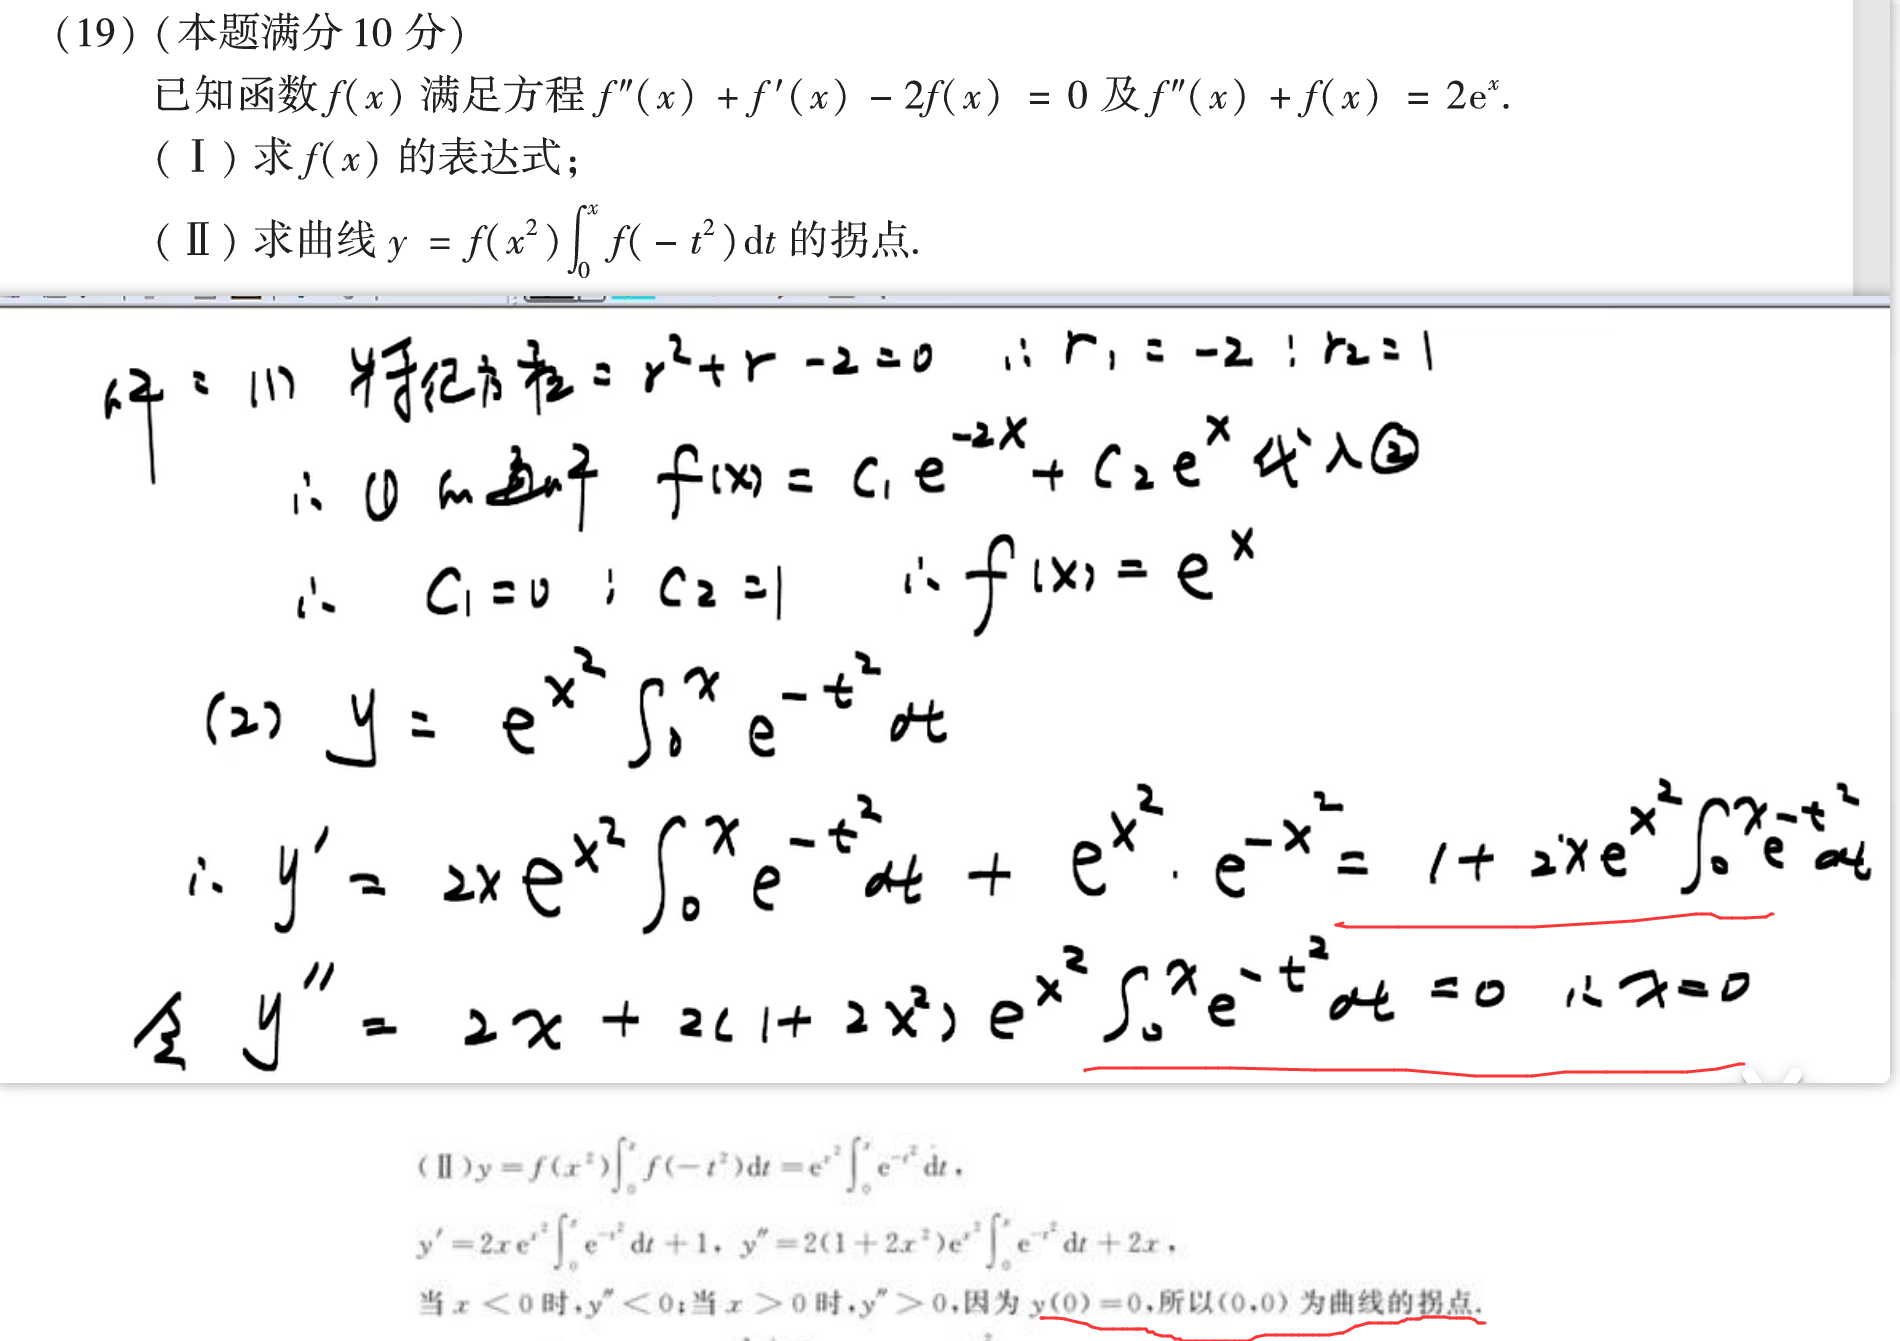 (19) (本题满分 10 分)
已知函数 f(x) 满足方程 f″(x) + f′(x) − 2f(x) = 0 及 f″(x) + f(x) = 2eˣ.
(Ⅰ) 求 f(x) 的表达式;
(Ⅱ) 求曲线 y = f(x²)∫₀ˣ f(−t²)dt 的拐点.
解: (1) 特征方程: r² + r − 2 = 0 ∴ r₁ = −2 ; r₂ = 1
∴ ① f(x) = C₁e⁻²ˣ + C₂eˣ 代入②
∴ C₁ = 0 ; C₂ = 1 ∴ f(x) = eˣ
(2) y = e^{x²} ∫₀ˣ e^{−t²} dt
∴ y′ = 2x e^{x²} ∫₀ˣ e^{−t²} dt + e^{x²} · e^{−x²} = 1 + 2x e^{x²} ∫₀ˣ e^{−t²} dt
令 y″ = 2x + 2(1 + 2x²) e^{x²} ∫₀ˣ e^{−t²} dt = 0 ∴ x = 0
(Ⅱ) y = f(x²)∫₀ˣ f(−t²)dt = e^{x²}∫₀ˣ e^{−t²} dt,
y′ = 2xe^{x²}∫₀ˣ e^{−t²} dt + 1, y″ = 2(1 + 2x²)e^{x²}∫₀ˣ e^{−t²} dt + 2x,
当 x < 0 时, y″ < 0; 当 x > 0 时, y″ > 0, 因为 y(0) = 0, 所以(0,0) 为曲线的拐点.